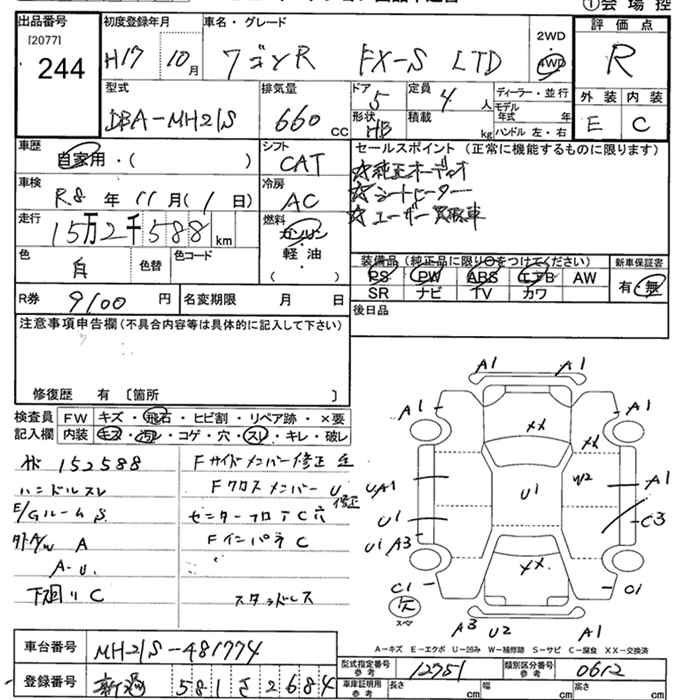 ①会 場 控
出品番号
[2077]
244
初度登録年月
H17 10月
車名・グレード
ワゴンR FX-S LTD
2WD
4WD
評 価 点
R
型式
DBA-MH21S
排気量
660 cc
ドア
5
形状
HB
定員
4 人
積載
kg
ディーラー・並 行
モデル
年式 年
ハンドル 左・右
外 装 内 装
E C
車歴
自家用・( )
シフト
CAT
セールスポイント (正常に機能するものに限ります)
☆純正オーディオ
☆シートヒーター
☆ユーザー買取車
車検
R8 年 11 月( 1 日)
冷房
AC
走行
15万2千588 km
燃料
ガソリン
・
軽 油
( )
色
白
色替
色コード
装備品 (純正品に限り○をつけてください)
PS PW ABS エアB AW
SR ナビ TV カワ
新車保証書
有・無
R券 9100 円
名変期限 月 日
後日品
注意事項申告欄(不具合内容等は具体的に記入して下さい)
修復歴 有 〔箇所 〕
検査員
記入欄
FW キズ・飛石・ヒビ割・リペア跡・×要
内装 キズ・汚レ・コゲ・穴・スレ・キレ・破レ
152588
ハンドルスレ
E/Gルーム S
A/W A
A-U
下廻り C
Fサイドメンバー修正
Fクロスメンバー U 修正
センターフロア C 穴
Fインパネ C
スタッドレス
A1 A1
A1 A1
XX
XX
UA1 U1 W2 A1
U1 C3
U1 A3
XX
C1 C1
スペア
A3 U2 A1
A-キズ E-エクボ U-凹み W-補修跡 S-サビ C-腐食 XX-交換済
車台番号 MH21S-481774
登録番号 新潟 581 さ 2684
型式指定番号
参考
12751
類別区分番号
参考
0612
車庫証明用
参考
長さ cm 幅 cm 高さ cm